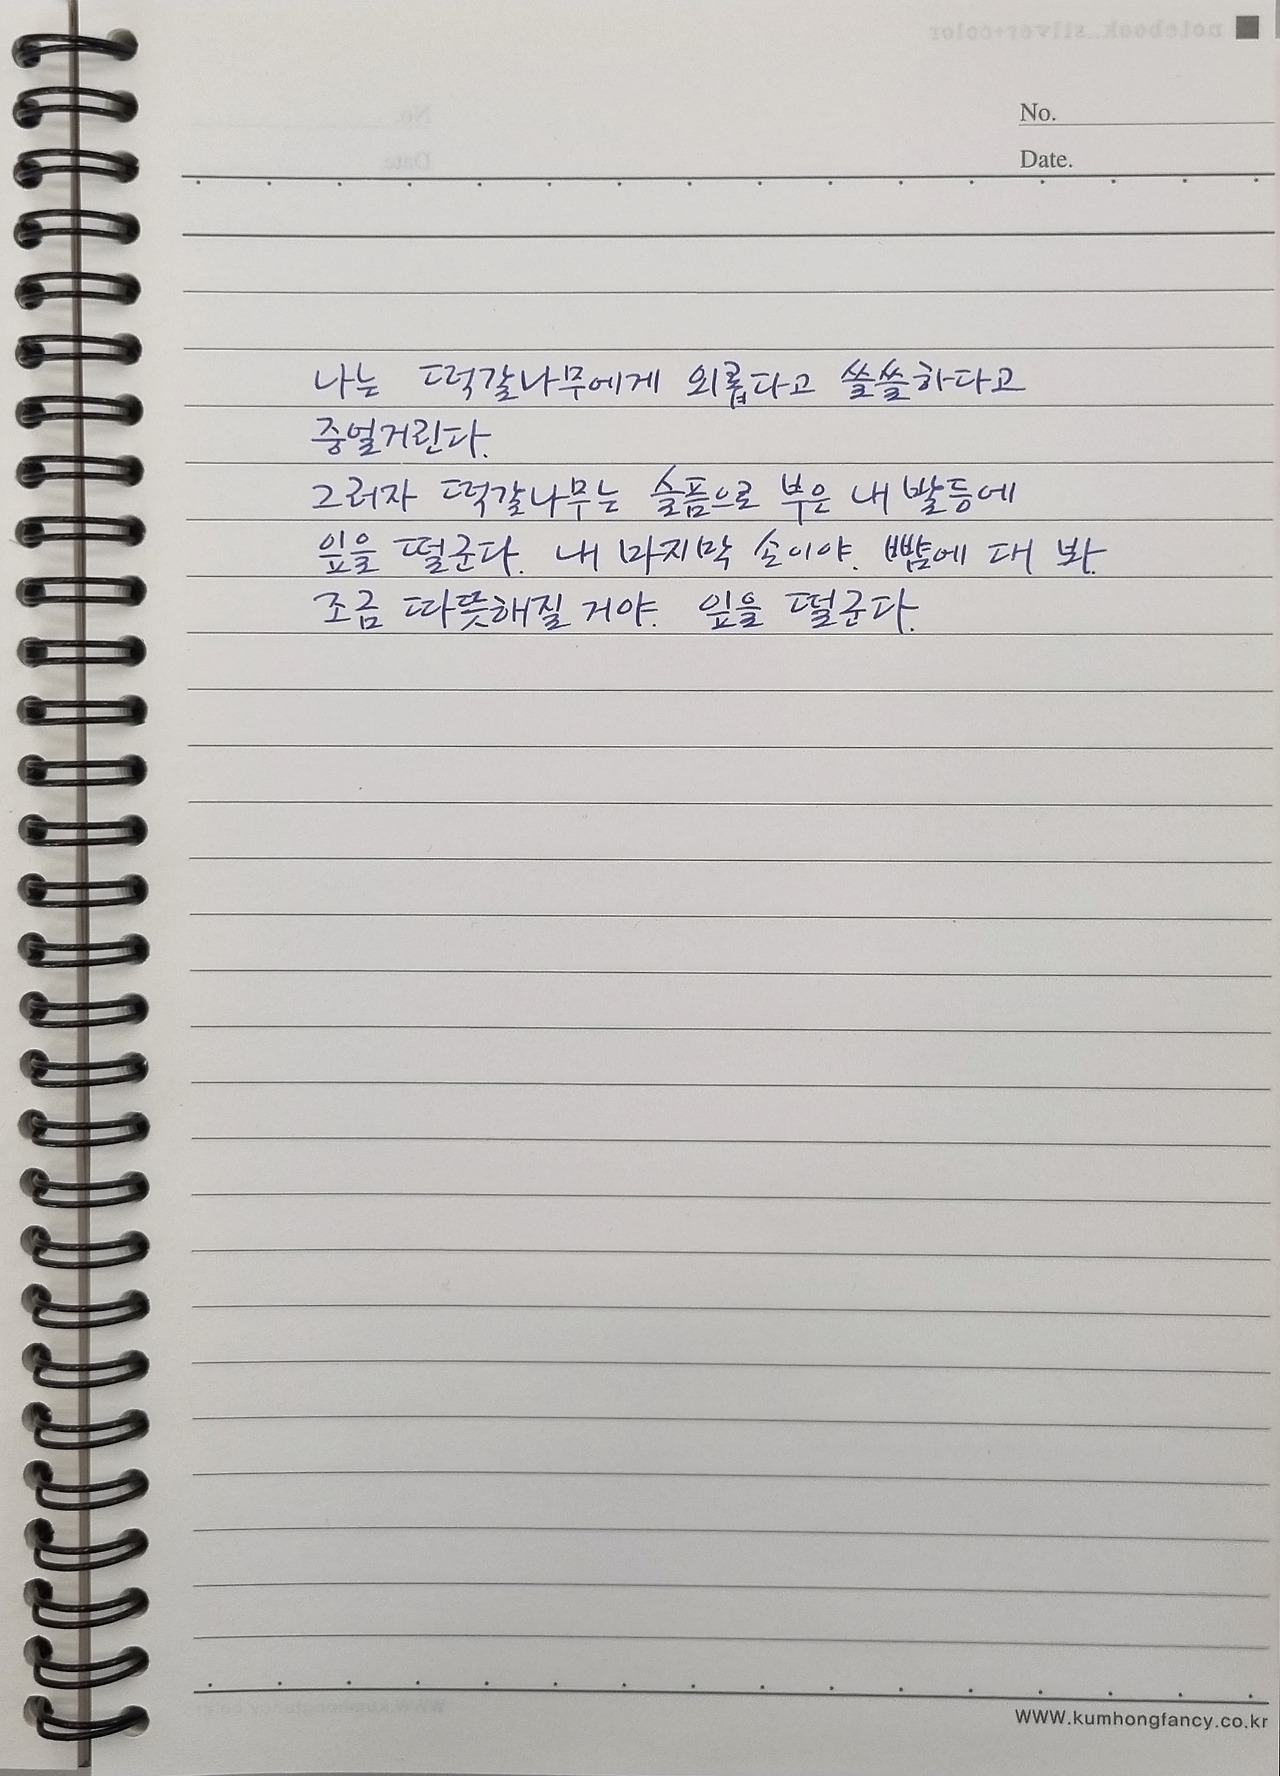 notebook..silver+color
No.
Date.
나는 떡갈나무에게 외롭다고 쓸쓸하다고
중얼거린다.
그러자 떡갈나무는 슬픔으로 부은 내 발등에
잎을 떨군다. 내 마지막 손이야. 뺨에 대 봐.
조금 따뜻해질 거야. 잎을 떨군다.
WWW.kumhongfancy.co.kr